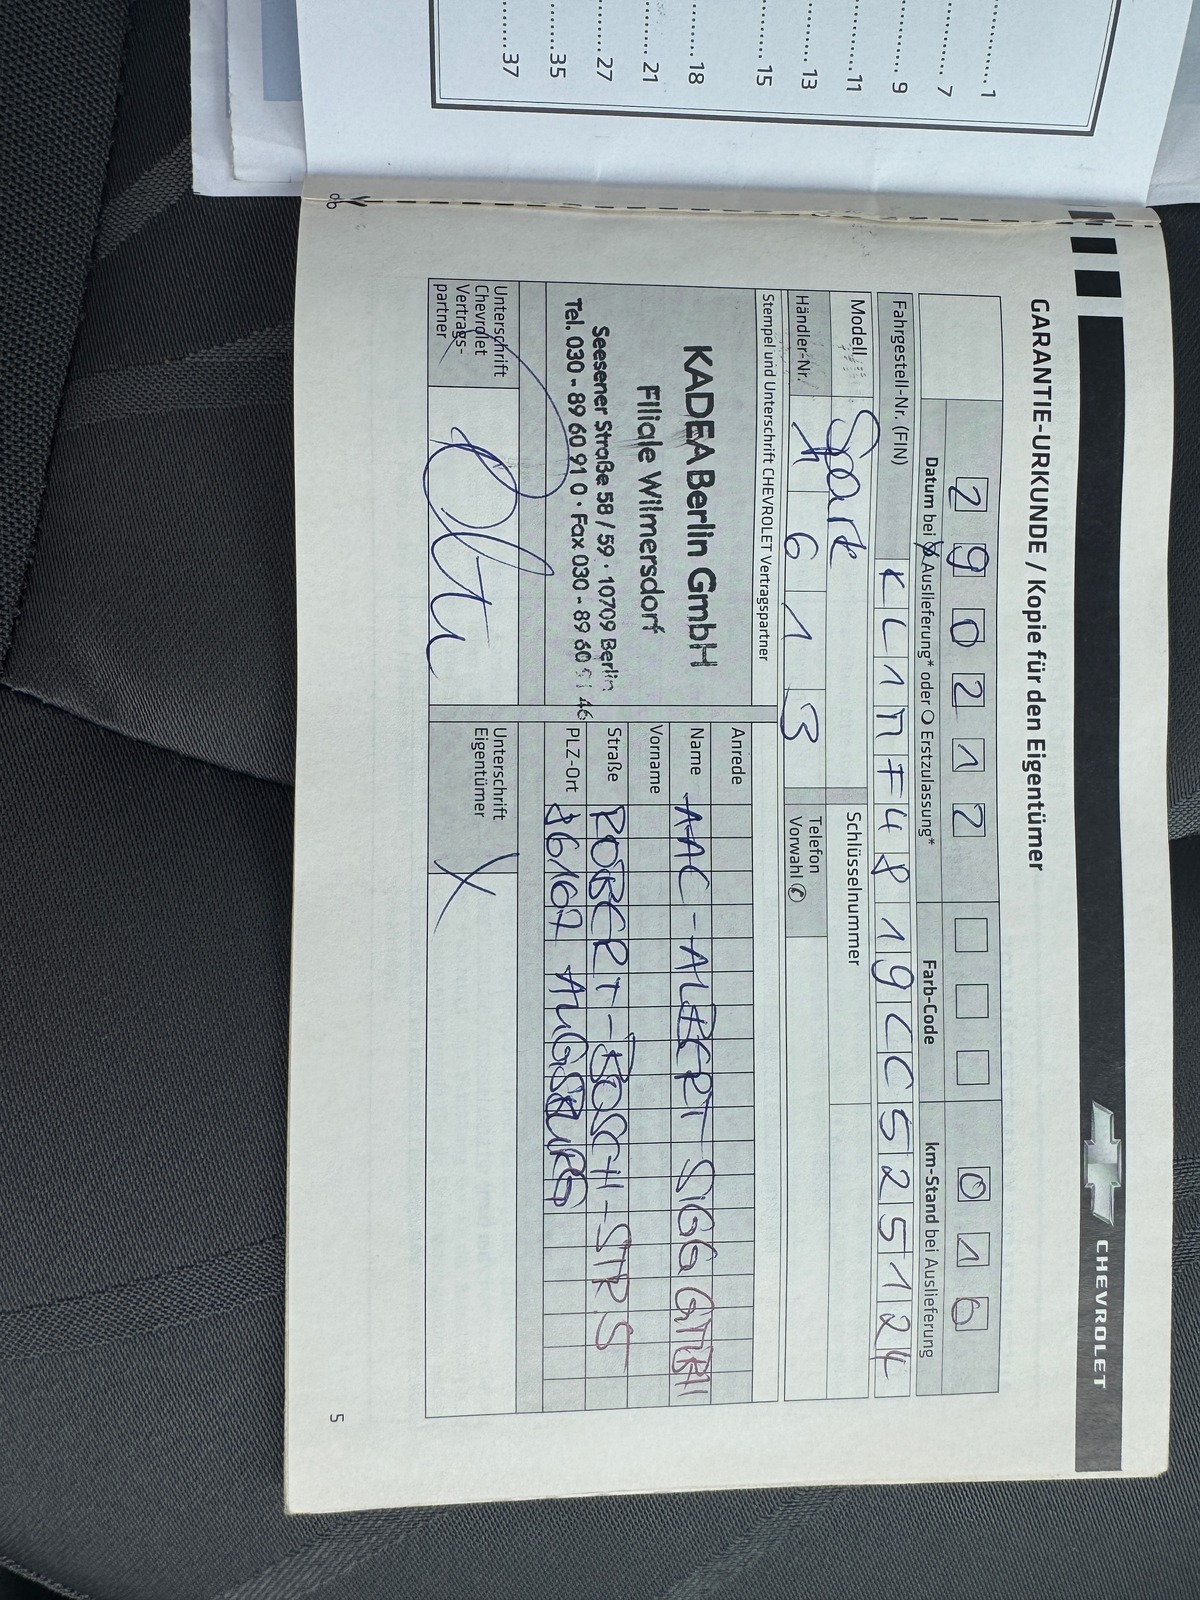 1
7
9
11
13
15
18
21
27
35
37
CHEVROLET
GARANTIE-URKUNDE / Kopie für den Eigentümer
290212 016
Datum bei Auslieferung* oder Erstzulassung* Farb-Code km-Stand bei Auslieferung
Fahrgestell-Nr. (FIN) KL1MF4819CC525124
Modell Spark Schlüsselnummer
Händler-Nr. 613 Telefon
Vorwahl
Stempel und Unterschrift CHEVROLET Vertragspartner
KADEA Berlin GmbH
Filiale Wilmersdorf
Seesener Straße 58 / 59 · 10709 Berlin
Tel. 030 - 89 60 91 0 · Fax 030 - 89 60 91 46
Anrede
Name AAC-ALBERT SIGG GMBH
Vorname
Straße ROBERT-BOSCH-STR 5
PLZ-Ort 86167 AUGSBURG
Unterschrift
Chevrolet
Vertrags-
partner
Unterschrift
Eigentümer X
5